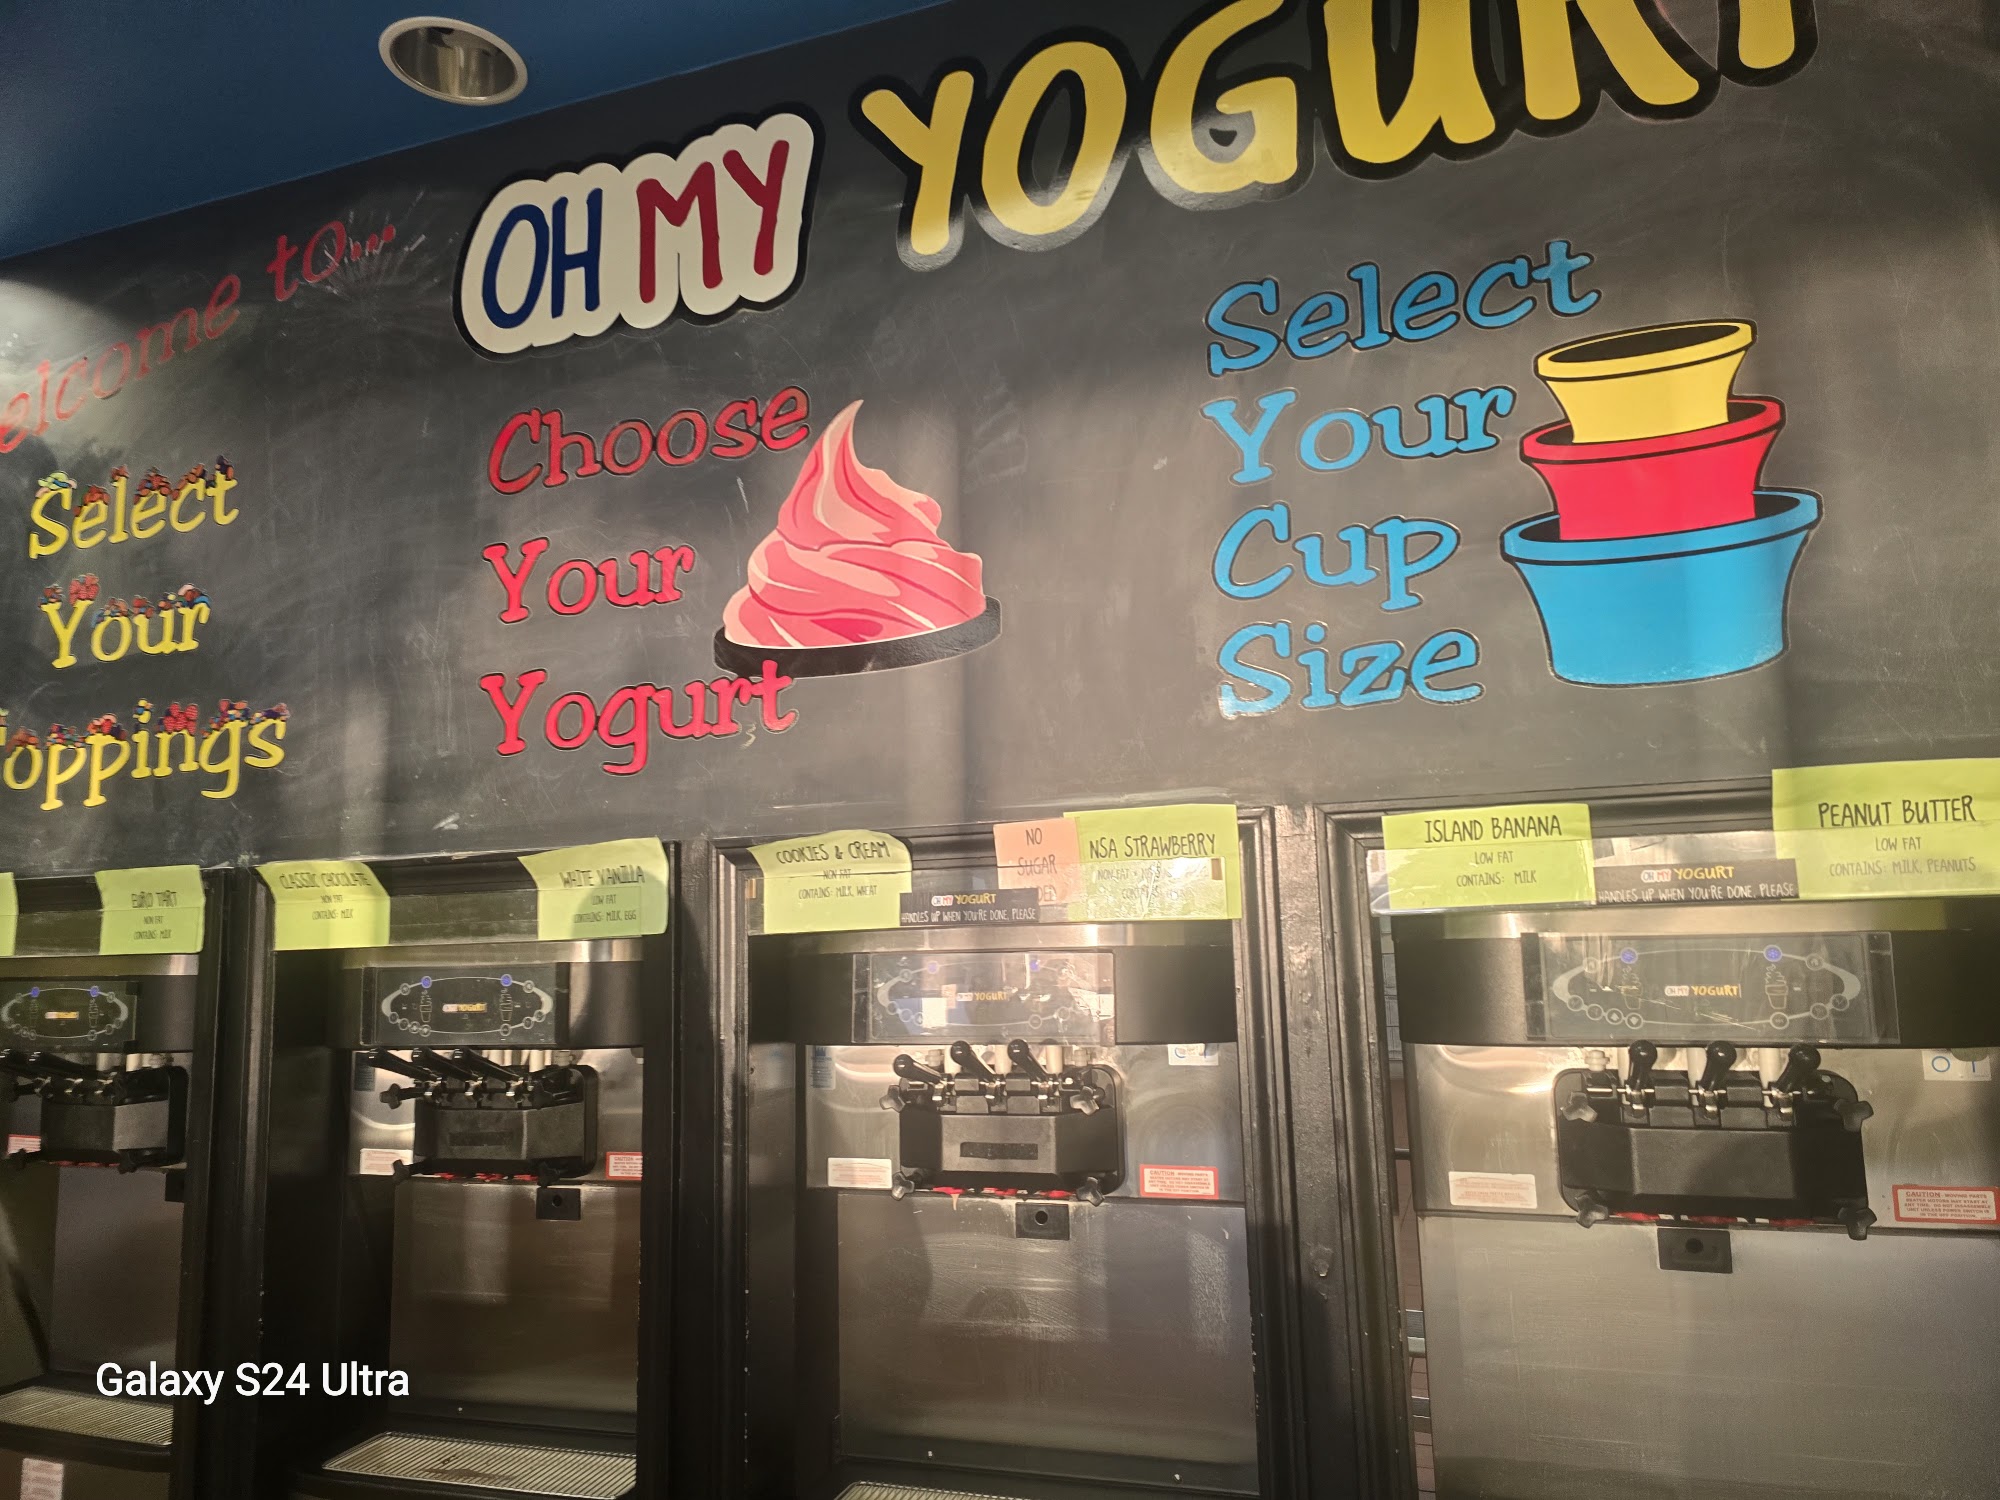 elcome to...
OH MY YOGURT
Select
Your
oppings
Choose
Your
Yogurt
Select
Your
Cup
Size
EURO TART
NON FAT
CONTAINS: MILK
CLASSIC CHOCOLATE
NON FAT
CONTAINS: MILK
WHITE VANILLA
LOW FAT
CONTAINS: MILK, EGG
COOKIES & CREAM
NON FAT
CONTAINS: MILK, WHEAT
OH MY YOGURT
HANDLES UP WHEN YOU'RE DONE, PLEASE
NO
SUGAR
DED
NSA STRAWBERRY
NON FAT
ISLAND BANANA
LOW FAT
CONTAINS: MILK
OH MY YOGURT
HANDLES UP WHEN YOU'RE DONE, PLEASE
PEANUT BUTTER
LOW FAT
CONTAINS: MILK, PEANUTS
OH MY YOGURT
OH MY YOGURT
OH MY YOGURT
CAUTION - MOVING PARTS
BEATER MOTORS MAY START AT
ANY TIME. DO NOT DISASSEMBLE
UNIT UNLESS POWER SWITCH IS
IN THE OFF POSITION
Galaxy S24 Ultra